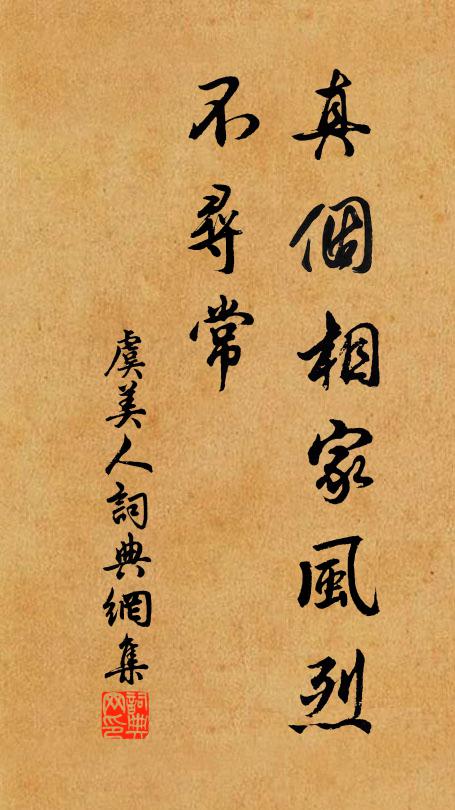 真個相家風烈
不尋常
虞美人詞典網集
詞典
网印